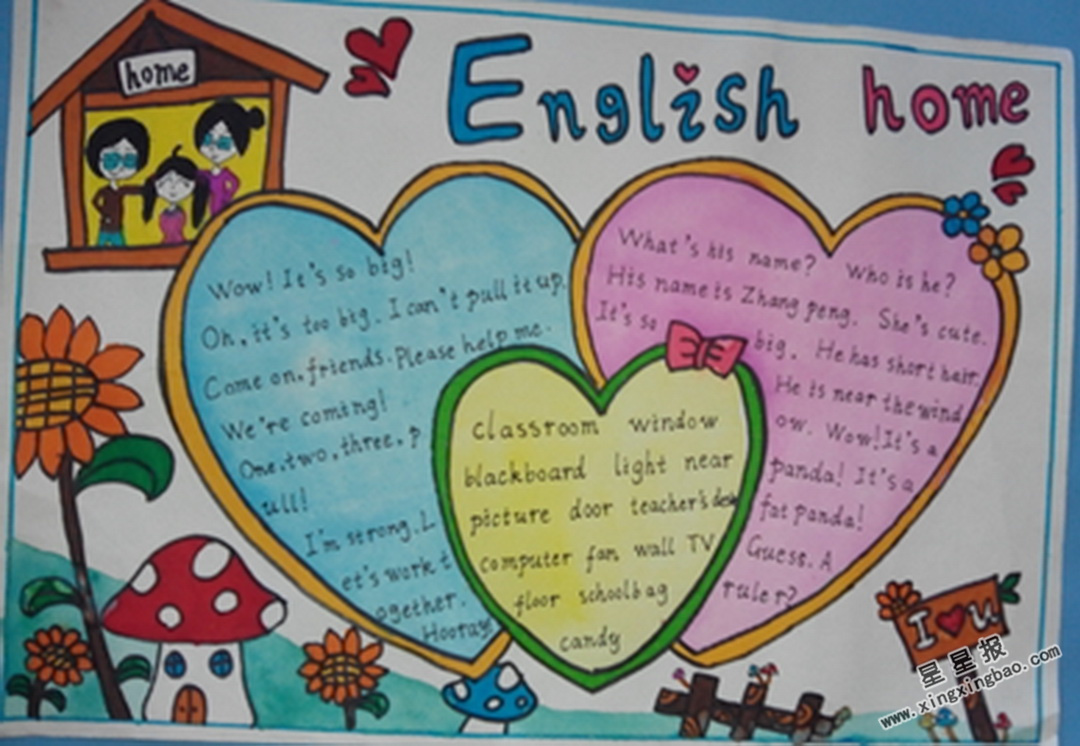 home
English home
Wow! It's so big!
Oh, it's too big. I can't pull it up.
Come on, friends. Please help me.
We're coming!
One, two, three. P
ull!
I'm strong. L
et's work t
ogether.
Hooray!
What's his name? Who is he?
His name is Zhang peng. She's cute.
It's so big. He has short hair.
He is near the wind
ow. Wow! It's a
panda! It's a
fat panda!
Guess. A
ruler?
classroom window
blackboard light near
picture door teacher's desk
computer fan wall TV
floor schoolbag
candy
I ♥ U
星星报
www.xingxingbao.com